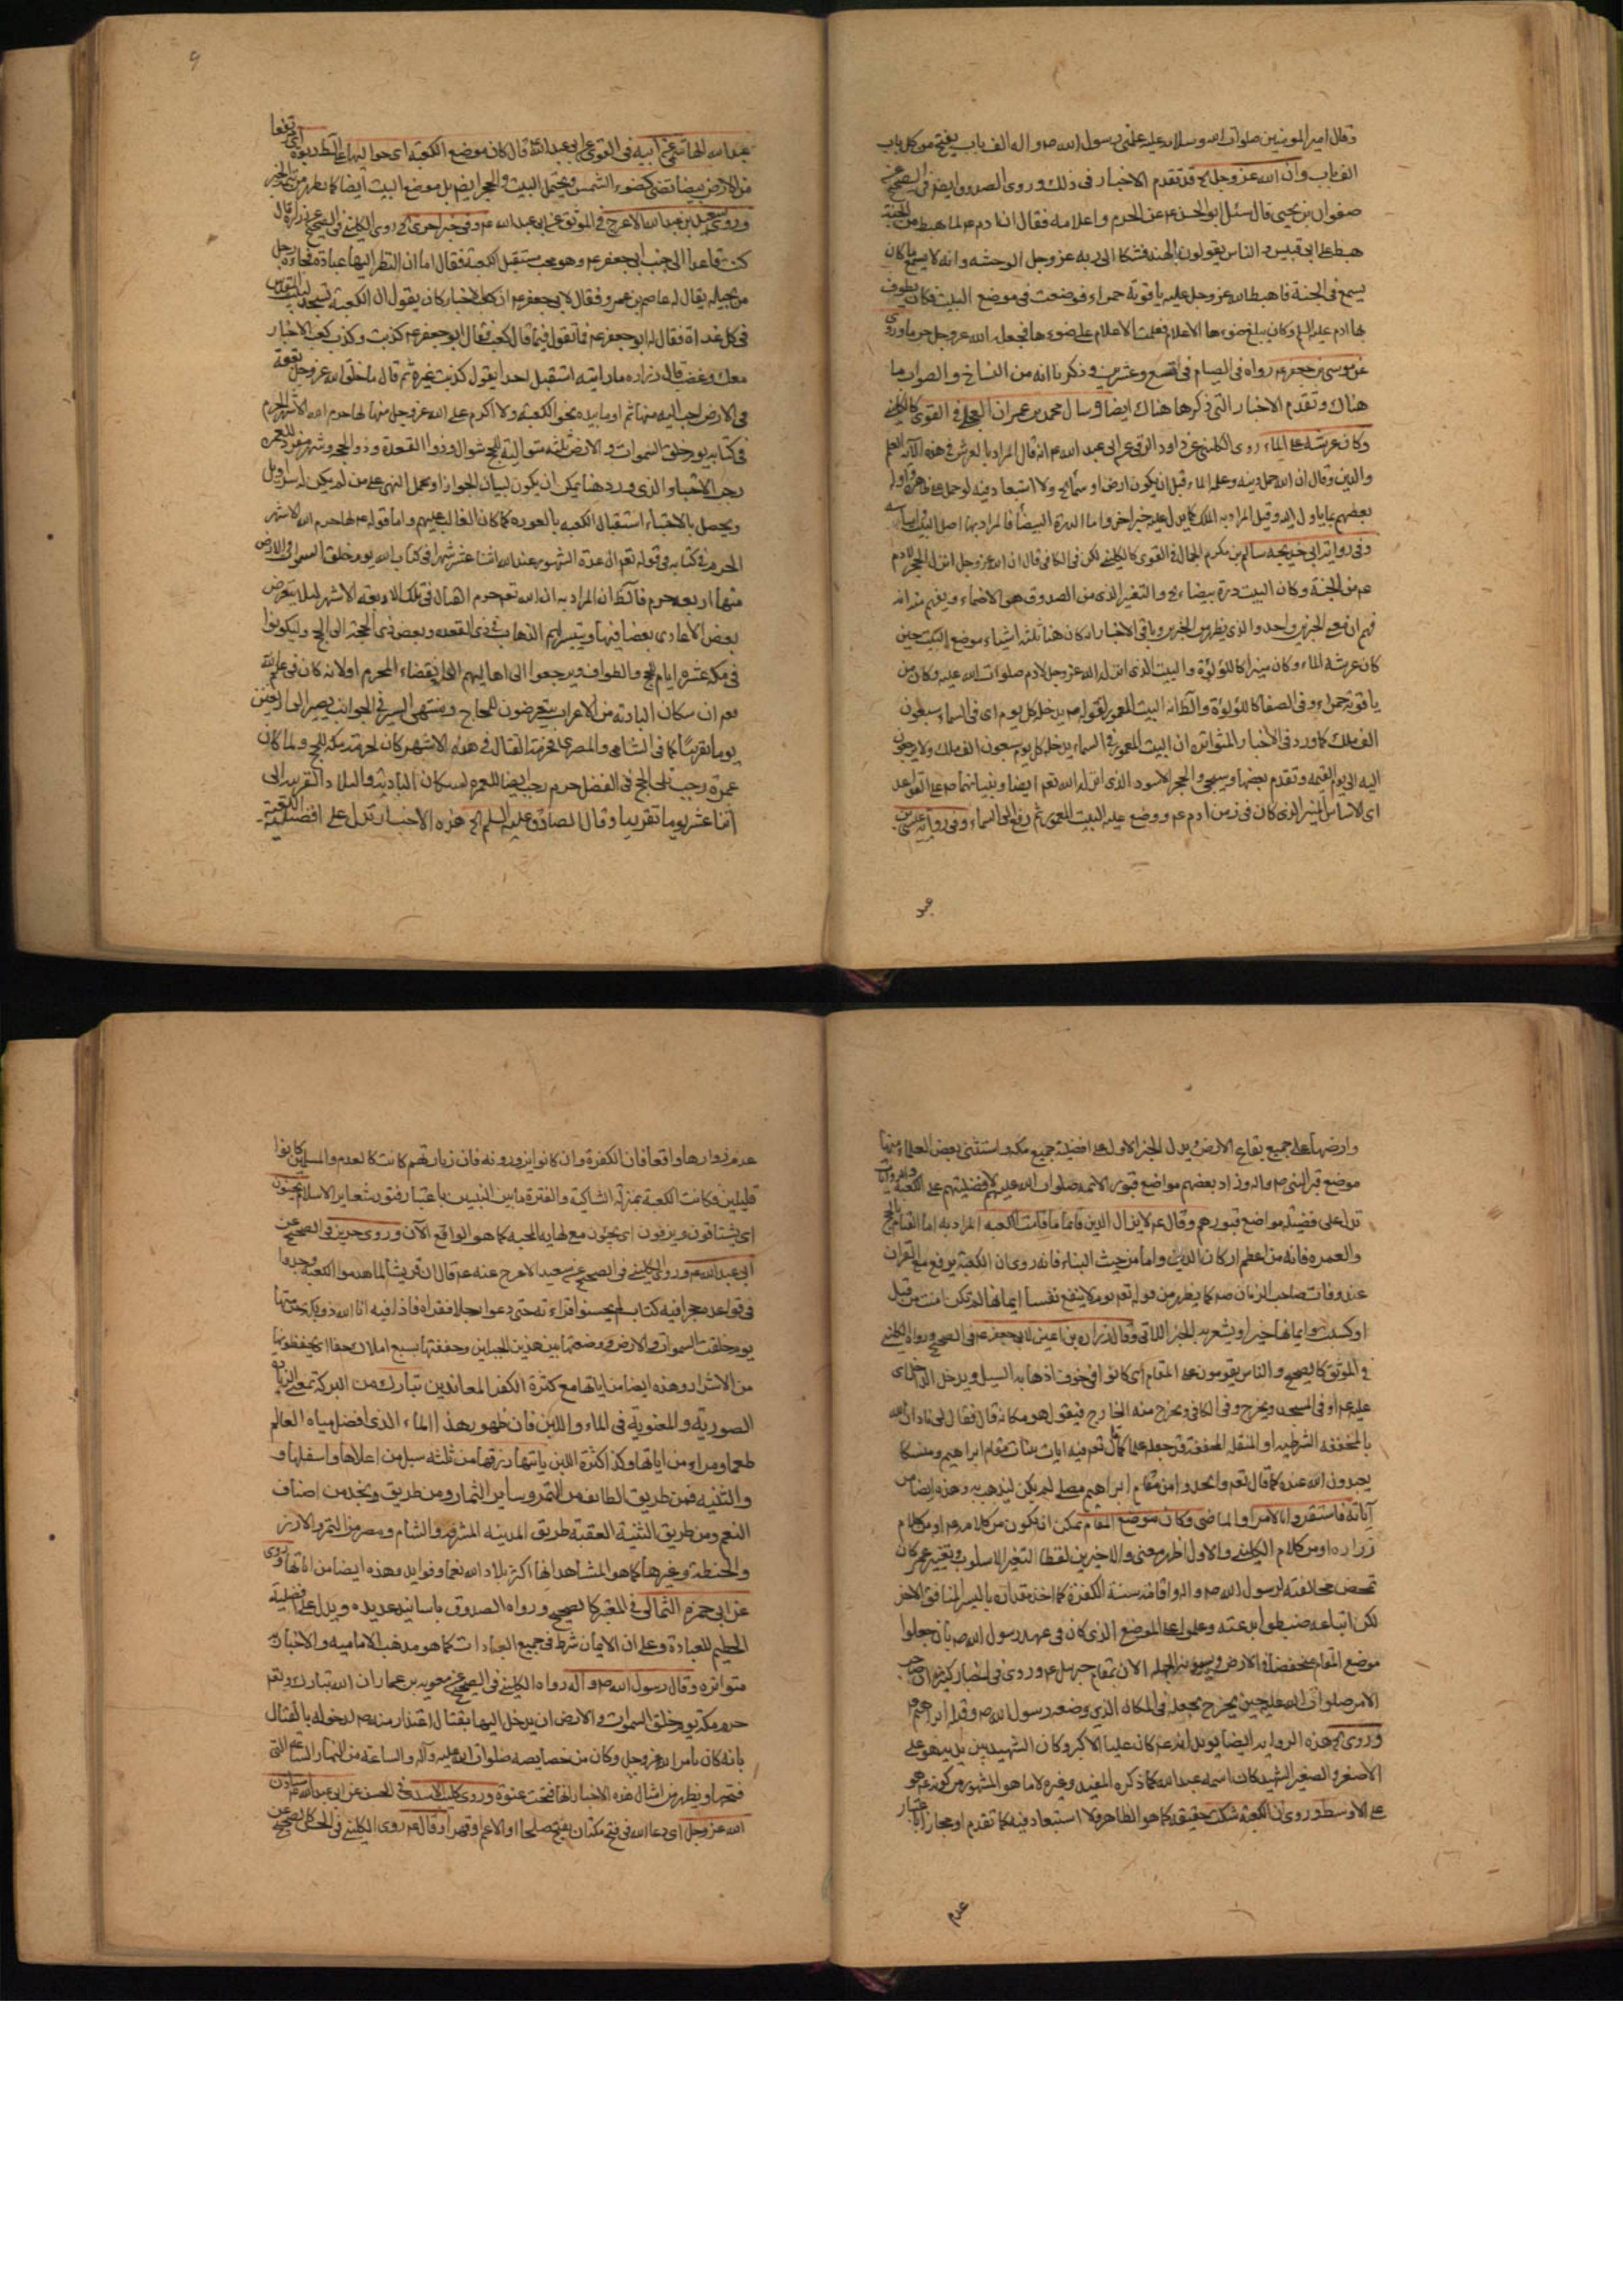 وقال امير المومنين صلوات الله وسلامه عليه علمنى رسول الله صم واله الف باب يفتح من كل باب
الف باب وان الله عز وجل الخ قد تقدم الاخبار فى ذلك وروى الصدوق ايضا فى الصحيح عن
صفوان بن يحيى قال سئل ابو الحسن عم عن الحرم واعلامه فقال ان ادم عم لما هبط من الجنة
هبط على ابى قبيس والناس يقولون بالهند فشكا الى ربه عز وجل الوحشه وانه لا يسمع ما كان
يسمع فى الجنة فاهبط الله عز وجل عليه ياقوتة حمراء فوضعت فى موضع البيت فكان يطوف
بها ادم عليه السلم وكان يبلغ ضوءها الاعلام فعلمت الاعلام على ضوءها فجعله الله عز وجل حرما وروى
عن موسى بن جعفر عم رواه فى الصيام فى تسع وعشرين وذكرنا انه من النساخ والصواب ما
هناك وتقدم الاخبار التى ذكرها هناك ايضا وسال محمد بن عمران العجلى فى القوى كالكلينى
وكان عرشه على الماء روى الكلينى عن داود الرقى عن ابى عبد الله عم انه قال المراد بالعرش فى هذه الآية العلم
والدين وقال ان الله حمل دينه وعلمه الماء قبل ان يكون ارض او سماء الخ ولا استبعاد فيه لو حمل على ظاهره واوله
بعضهم بما ياول اليه وقيل المراد به الملك كما يدل عليه خبر اخر واما الدرة البيضا فالمراد بها اصل البيت واساسه
وفى رواية ابى خديجه سالم بن مكرم الجمال فى القوى كالكلينى لكن فى الكافى قال ان الله عز وجل انزل الحجر لادم
عم من الجنة وكان البيت درة بيضاء الخ والتغير الذى من الصدوق هو الانضماء ويفهم منه انه
فهم ان معنى الخبرين واحد والذى يظهر من الخبرين وباقى الاخبار انه كان هنا ثلثه اشياء موضع البيت حين
كان عرشه الماء وكان منيرا كاللؤلؤة والبيت الذى انزله الله عز وجل لادم صلوات الله عليه وكان من
ياقوتة حمراء وفى الصفا كاللؤلؤة والظ انه البيت المعمور لقوله عم يدخله كل يوم اى فى السماء سبعون
الف ملك كما ورد فى الاخبار المتواتره ان البيت المعمور فى السماء يدخله كل يوم سبعون الف ملك ولا يرجعون
اليه الى يوم القيمه وتقدم بعضها وسيجئ والحجر الاسود الذى انزله الله تعم ايضا وبنيانهما عم على القواعد
اى الاساس المنير الذى كان فى زمن ادم عم ووضع عليه البيت المعمور ثم رفع الى السماء وفى رواية عيسى بن
عبد
عبد الله الهاشمى عن ابيه فى القوى عن ابى عبد الله عم قال كان موضع الكعبه اى حواليها على التطهر ربوه اى ترتفعا
من الارض بيضا تضئ كضوء الشمس ويحتمل البيت والحجر ايضم بل موضع البيت ايضا كما يظهر من الخبر
وروى سعيد بن عبد الله الاعرج فى الموثق عن ابى عبد الله عم وفى خبر اخر الخ روى الكلينى فى الصحيح عن زراره قال
كنت قاعدا الى جنب ابى جعفر عم وهو محتب مستقبل الكعبة فقال اما ان النظر اليها عبادة فجاءه رجل
من بجيله يقال له عاصم بن عمر وفقال لابى جعفر عم ان كعب الاحبار كان يقول ان الكعبة تسجد لبيت المقدس
فى كل غداة فقال له ابو جعفر عم فما تقول فيما قال كعب فقال ابو جعفر عم كذبت وكذب كعب الاحبار
معك وغضب قال زراره ما رايته استقبل احدا يقول كذبت غيره ثم قال ما خلق الله عز وجل بقعة
فى الارض احب اليه منها ثم اوما بيده نحو الكعبة ولا اكرم على الله عز وجل منها لها حرم الله الاشهر الحرم
فى كتابه يوم خلق السموات والارض ثلثه متواليه للحج شوال وذو القعدة وذو الحجه وشهر مفرد للعمره
رجب الاحتباء الذى ورد هنا يمكن ان يكون لبيان الجواز او يحمل النهى على من لم يكن له سراويل
ويحصل بالاحتباء استقبال الكعبه بالعوره كما كان الغالب عليهم واما قوله عم لها حرم الله الاشهر
الحرم فى كتابه فى قوله تعم ان عدة الشهور عند الله اثنا عشر شهرا فى كتاب الله يوم خلق السموات والارض
منها اربعه حرم فالظ ان المراد به ان الله تعم حرم القتال فى تلك الاربعة الاشهر لئلا يتعرض
بعض الاعادى بعضا فيها ويتيسر لهم الذهاب فى ذى القعده وبعض ذى الحجة الى الحج وليكونوا
فى مكه عشره ايام للحج والطواف ويرجعوا الى اهاليهم الى انقضاء المحرم اولانه كان فى علم الله
تعم ان سكان البادية من الاعراب يتعرضون للحاج وينتهى السير فى الجوانب يصير الى اربعين
يوما تقريبا كما فى الشامى والمصرى فحرمة القتال فى هذه الاشهر كان لحرمة مكه للحج ولما كان
عمرة رجب تلى الحج فى الفضل حرم رجب ايضا للعمره لسكان البادية والبلاد القريبه الى
اثنا عشر يوما تقريبا وقال الصادق عليه السلم الخ هذه الاخبار تدل على افضلية الكعبة
وارضها على جميع بقاع الارض ويدل الخبر الاول على افضلية جميع مكه واستثنى بعض العلماء منها
موضع قبر النبى صم واله وزاد بعضهم مواضع قبور الائمه صلوات الله عليهم لافضليتهم على الكعبة والروايات
تدل على فضيلة مواضع قبورهم وقال عم لا يزال الدين قائما ما قامت الكعبه المراد به اما القيام بالحج
والعمره فانه من اعظم اركان الدين واما من حيث البناء فانه روى ان الكعبة يرفع مع القران
عند وفات صاحب الزمان صم كما يظهر من قوله تعم يوم لا ينفع نفسا ايمانها لم تكن امنت من قبل
او كسبت فى ايمانها خيرا ويشعر به الخبر الاتى وقال زراره بن اعين لابى جعفر عم فى الصحيح ورواه الكلينى
فى الموثق كالصحيح والناس يقومون على المقام اى كانوا فى خوف اذهابه السيل ويدخل الداخل اى
عليه عم او فى المسجد ويخرج وفى الكافى ويخرج منه الخارج فيقول هو مكانه قال فقال لى نادان الله
بالمخففه الشرطيه او المثقله المحققة قد جعله علما كما قال تعم فيه ايات بينات مقام ابراهيم ومنسكا
يعبدون الله عنده كما قال تعم واتخذوا من مقام ابراهيم مصلى لم يكن ليذهب به وهذه ايضا من
آياته فاستقروا بالامر او الماضى وكان موضع المقام يمكن انه يكون من كلامه عم او من كلام
زراره او من كلام الكلينى والاول اظهر معنى والاخيرين لفظا لتغير الاسلوب وتغيير عمر كان
تمحض مخالفته لرسول الله صم والوافاقة سنة الكفرة كما اخذ مقداره بالسير المنافق الاخر
لكن اتباعه ضبطوا بدعته وعلموا على الموضع الذى كان فى عهد رسول الله صم بان جعلوا
موضع المقام منخفضا والارض ويسمونه الجهله الان بمقام جبرئيل عم وروى فى اخبار كثيره ان صاحب
الامر صلوات الله عليه حين يخرج يجعله فى المكان الذى وضعه رسول الله صم وقبله ابراهيم عم
وروى الخ هذه الروايه ايضا يويد انه عم كان عليا الاكبر وكان الشهيد بين يديه هو على
الاصغر والصغير الشهيد كان اسمه عبد الله كما ذكره المفيد وغيره لا ما هو المشهور من كونه عم هو
على الاوسط وروى ان الكعبة شكت حقيقه كما هو الظاهر ولا استبعاد فيه كما تقدم او مجازا باعتبار
عدم
عدم زوارها واقعا فان الكفرة وان كانوا يزورونه فان زيارتهم كانت كالعدم والمسلمين كانوا
قليلين فكانت الكعبة بمنزلة الشاكية والفترة ما بين النبيين باعتبار فتور شعاير الاسلام يحنون
اى يشتاقون ويزفون اى يجيئون مع نهاية المحبه كما هو الواقع الآن وروى حريز فى الصحيح عن
ابى عبد الله عم وروى الكلينى فى الصحيح عن سعيد الاعرج عنه عم قال ان قريشا لما هدموا الكعبة وجدوا
فى قواعده حجرا فيه كتاب لم يحسنوا قراءته حتى دعوا رجلا فقراه فاذا فيه انا الله ذو بكة حرمتها
يوم خلقت السموات والارض ووضعتها بين هذين الجبلين وحففتها بسبع املاك حفا اى يحفظونها
من الاشرار وهذه ايضا من اياتها مع كثرة الكفر المعاندين تبارك من البركة بمعنى الزيادة
الصوريه والمعنوية فى الماء واللبن فان ظهور هذا الماء الذى افضل مياه العالم
طعما ومراء من اياتها وكذا كثرة اللبن ياتيها رزقها من ثلثه سبل من اعلاها واسفلها و
والثنيه فمن طريق الطائف من التمر وساير الثمار ومن طريق ونجد من اصناف
النعم ومن طريق الثنية العقبة طريق المدينه المشرفه والشام ومصر من التمر والارز
والحنطة وغيرها كما هو المشاهد انها اكثر بلاد الله نعما وفوايد وهذه ايضا من اياتها وروى
عن ابى حمزه الثمالى فى المعتبر كالصحيح ورواه الصدوق باسانيد عديده ويدل على افضلية
الحطيم للعبادة وعلى ان الايمان شرط فى جميع العبادات كما هو مذهب الاماميه والاخبار به
متواتره وقال رسول الله صم وآله رواه الكلينى فى الصحيح عن معويه بن عمار ان الله تبارك وتعم
حرم مكة يوم خلق السموات والارض ان يدخل اليها بقتال اعتذار منه صم لدخوله بالقتال
بانه كان بامر الله عز وجل وكان من خصايصه صلوات الله عليه وآله والساعة من النهار الساعة التى
فتحها ويظهر من امثال هذه الاخبار انها فتحت عنوة وروى كليب الاسدى فى الحسن عن ابى عبد الله عم استاذن
الله عز وجل اى دعا الله فى فتح مكه ان يفتح صلحا او الاعم وقهرا وقال عم روى الكلينى فى الحسن كالصحيح عن